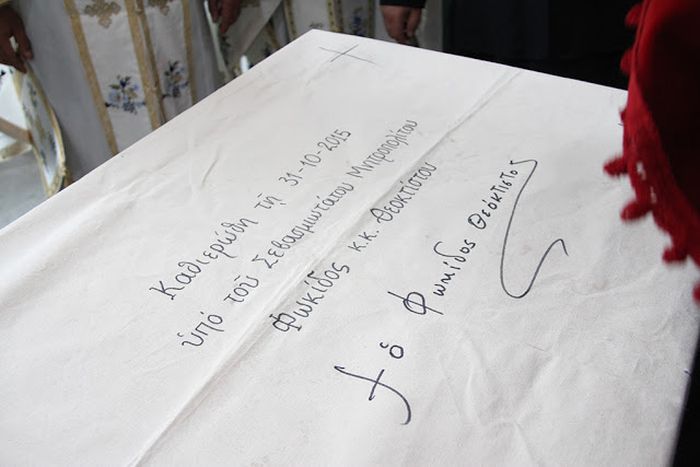 Καθιερώθη τῇ 31-10-2015
ὑπό τοῦ Σεβασμιωτάτου Μητροπολίτου
Φωκίδος κ.κ. Θεοκτίστου
† ὁ Φωκίδος Θεόκτιστος